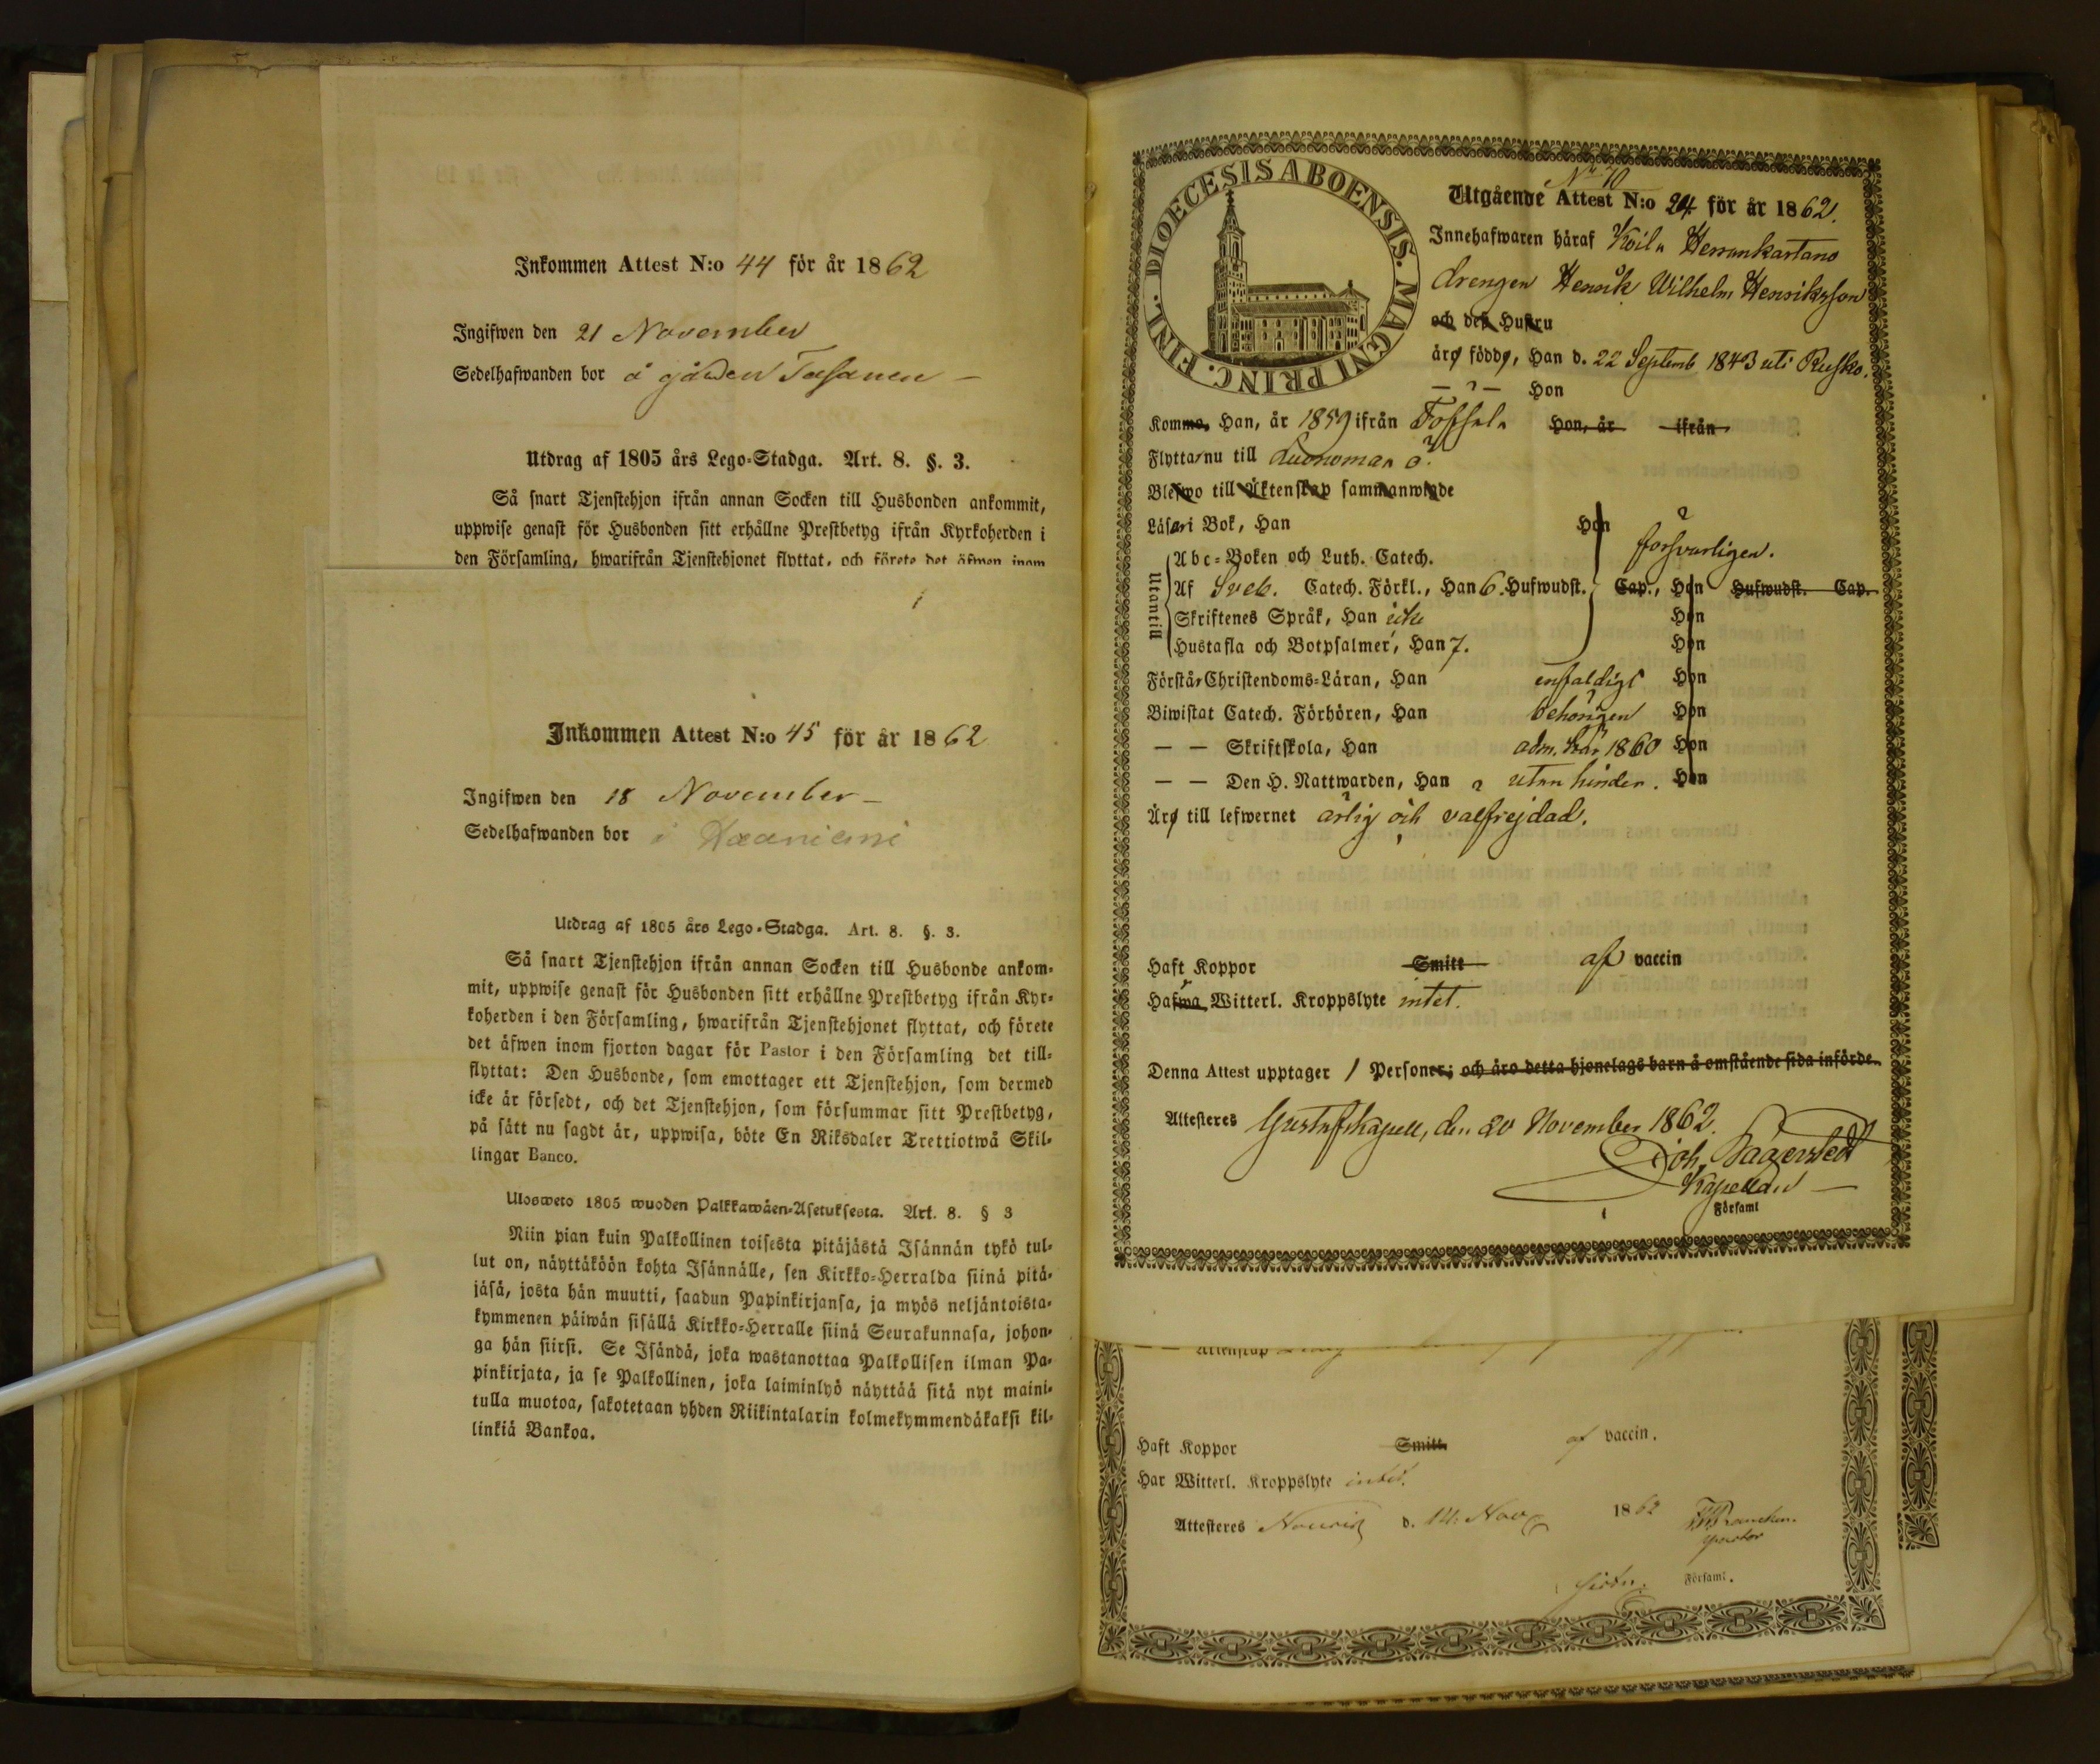 Inkommen Attest N:o 44 för år 1862
Ingifwen den 21 November
Sedelhafwanden bor å gården Tasanen —
Utdrag af 1805 års Lego-Stadga. Art. 8. §. 3.
Så snart Tjenstehjon ifrån annan Socken till Husbonden ankommit,
uppwise genast för Husbonden sitt erhållne Prestbetyg ifrån Kyrkoherden i
den Församling, hwarifrån Tjenstehjonet flyttat, och förete det äfwen inom
1
Inkommen Attest N:o 45 för år 1862
Ingifwen den 18 November —
Sedelhafwanden bor i
Utdrag af 1805 års Lego-Stadga. Art. 8. §. 3.
Så snart Tjenstehjon ifrån annan Socken till Husbonde ankom-
mit, uppwise genast för Husbonden sitt erhållne Prestbetyg ifrån Kyr-
koherden i den Församling, hwarifrån Tjenstehjonet flyttat, och förete
det äfwen inom fjorton dagar för Pastor i den Församling det till-
flyttat: Den Husbonde, som emottager ett Tjenstehjon, som dermed
icke är försedt, och det Tjenstehjon, som försummar sitt Prestbetyg,
på sätt nu sagdt är, uppwisa, böte En Riksdaler Trettiotwå Skil-
lingar Banco.
Ulosweto 1805 wuoden Palkkawäen-Asetuksesta. Art. 8. § 3
Niin pian kuin Palkollinen toisesta pitäjästä Isännän tykö tul-
lut on, näyttäköön kohta Isännälle, sen Kirkko-Herralda siinä pitä-
jäsä, josta hän muutti, saadun Papinkirjansa, ja myös neljäntoista-
kymmenen päiwän sisällä Kirkko-Herralle siinä Seurakunnasa, johon-
ga hän siirsi. Se Isändä, joka wastanottaa Palkollisen ilman Pa-
pinkirjata, ja se Palkollinen, joka laiminlyö näyttää sitä nyt maini-
tulla muotoa, sakotetaan yhden Riikintalarin kolmekymmendäkaksi kil-
linkiä Bankoa.
DIOECESIS ABOENSIS. MAGNI PRINC. FINL.
No 70
Utgående Attest N:o 24 för år 1862.
Innehafwaren häraf Koila Herrankartano
drengen Henrik Wilhelm Henriksson
och des Hustru
äro födde, Han d. 22 Septemb 1843 uti Rusko.
— " — Hon
Komma, Han, år 1859 ifrån Tofsala Hon, år ifrån
Flytta nu till
Blefwo till Äktenskap sammanwigde
Läsa i Bok, Han Hon försvarligen.
Utantill
Abc-Boken och Luth. Catech.
Af Sveb. Catech. Förkl., Han 6. Hufwudst. Cap., Hon Hufwudst. Cap.
Skriftenes Språk, Han icke Hon
Hustafla och Botpsalmer, Han 7. Hon
Förstår Christendoms-Läran, Han enfaldigt Hon
Biwistat Catech. Förhören, Han behörigen Hon
— — Skriftskola, Han adm. 1860 Hon
— — Den H. Nattwarden, Han utan hinder. Hon
Äro till lefwernet ärlig och välfrejdad.
Haft Koppor Smitt af vaccin
Hafwa Witterl. Kroppslyte intet.
Denna Attest upptager 1 Personer; och äro detta hjonelags barn å omstående sida införde.
Attesteres Gustafs kapell, den 20 November 1862.
Joh. Lagerstedt
Kapellan —
Församl
— — Attenskap
Haft Koppor Smitt af vaccin.
Har Witterl. Kroppslyte intet.
Attesteres Nousis d. 14. Nov 1862
Församl.